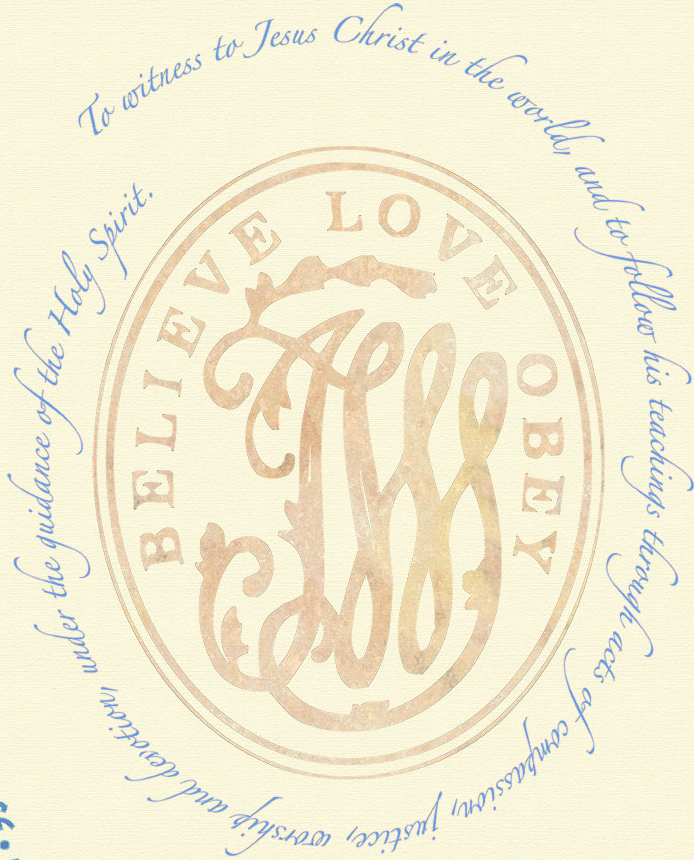 To witness to Jesus Christ in the world, and to follow his teachings through acts of compassion, justice, worship and devotion, under the guidance of the Holy Spirit.
BELIEVE LOVE OBEY